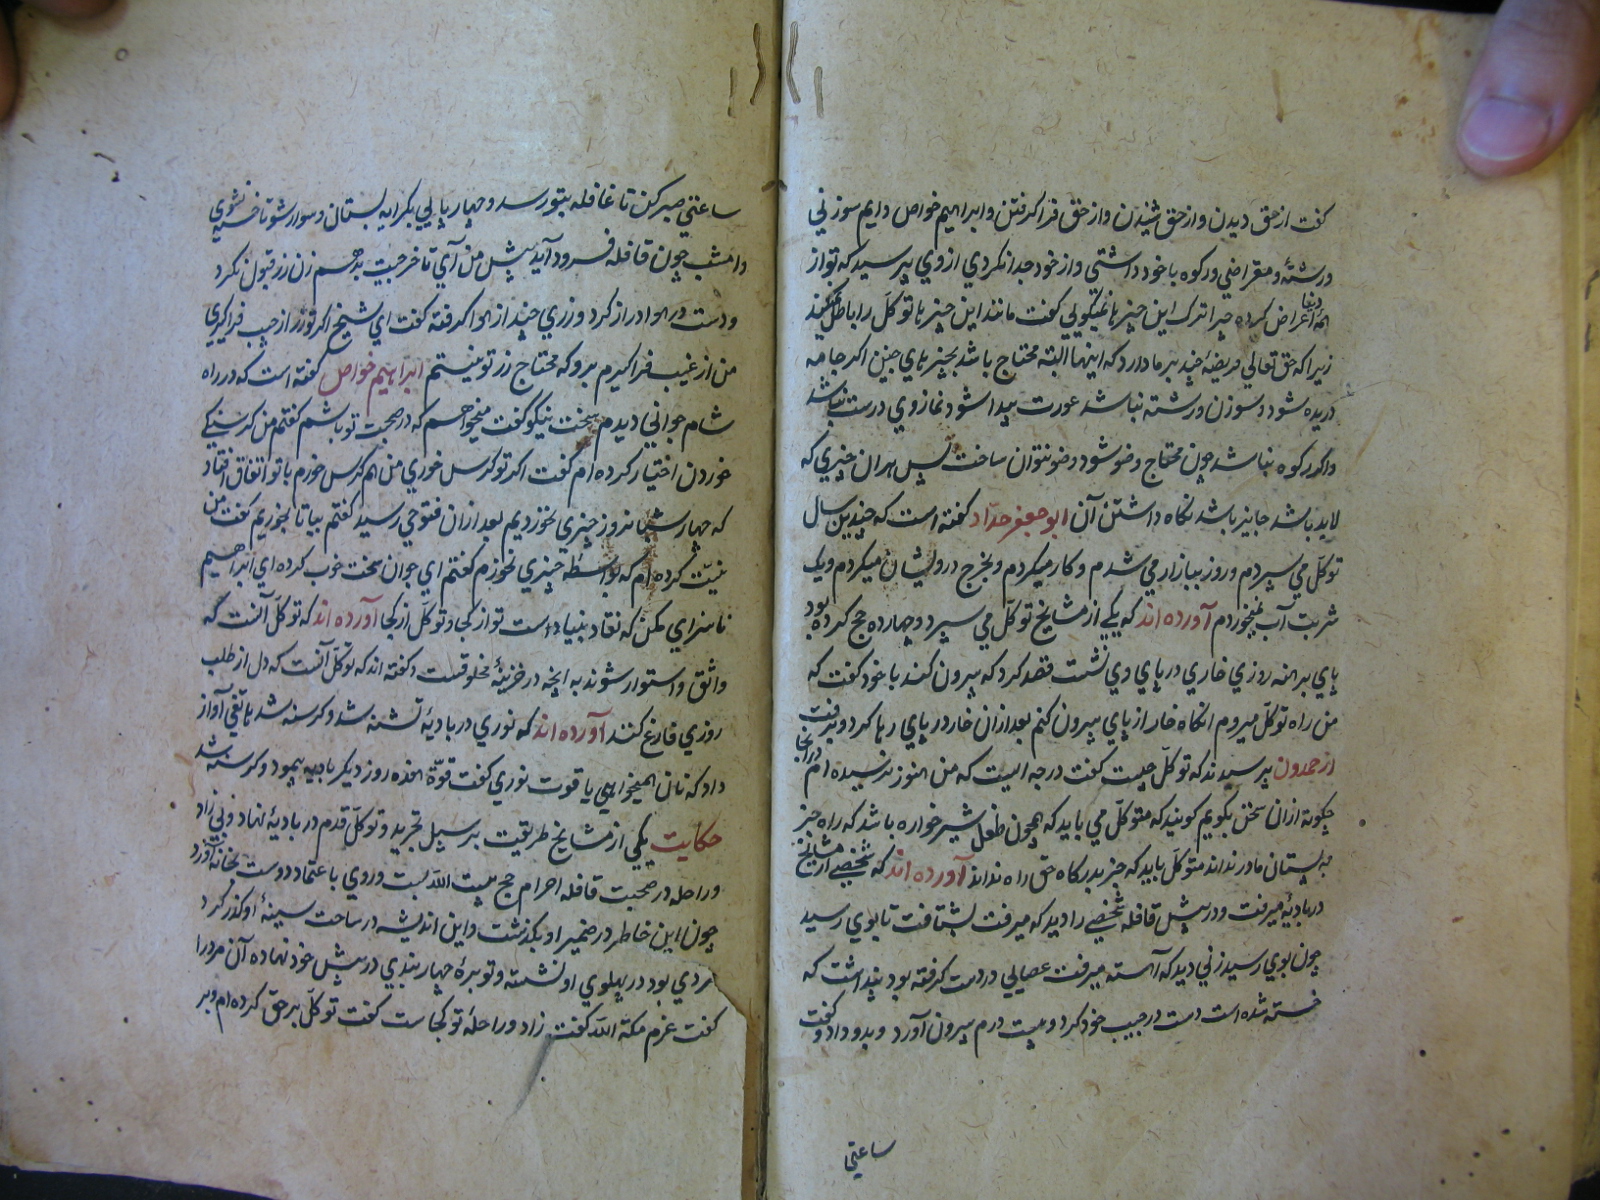 گفت از حق دیدن و از حق شنیدن و از حق فراگرفتن و ابراهیم خواص دایم سوزنی
و رشتهٔ و مقراضی و رکوه با خود داشتی و از خود جدا نکردی از وی پرسید که تو از
همه اعراض کرده چرا ترک این چیزها نمیگویی گفت مانند این چیزها توکل را باطل نکند
دنیا
زیرا که حق تعالی فریضهٔ چند بر ما دارد که اینها البته محتاج باشد بچیزهای چنین اگر جامه
دریده شود و سوزن و رشته نباشد عورت پیدا شود نماز وی درست نباشد
و اگر رکوه نباشد چون محتاج وضو شود وضو نتوان ساخت پس هر آن چیزی که
لابد باشد جایز باشد نگاه داشتن آن ابو جعفر حداد گفته است که چندین سال
توکل می سپردم و روز ببازار می شدم و کار میکردم و بخرج درویشان میکردم و یک
شربت آب نمیخوردم آورده اند که یکی از مشایخ توکل می سپرد و چهارده حج کرده بود
پای برهنه روزی خاری در پای وی نشست قصد کرد که بیرون کند با خود گفت که
من راه توکل میروم آنکاه خار از پای بیرون کنم بعد از آن خار در پای رها کرد و برفت
از حمدون پرسیدند که توکل چیست گفت درجه ایست که من هنوز نرسیده ام در آنجا
چگونه از آن سخن بگویم گویند که متوکل می باید که همچون طفل شیرخواره باشد که راه جز
به پستان مادر نداند متوکل باید که جز بدرگاه حق راه نداند آورده اند که شخصی از مشایخ
در بادیهٔ میرفت و در پیش قافله شخصی را دید که میرفت بشتافت تا بوی رسید
چون بوی رسید زنی دید که آهسته میرفت عصایی در دست گرفته بود پنداشت که
خسته شده است دست در جیب خود کرد و بیست درم بیرون آورد و بدو داد و گفت
ساعتی
ساعتی صبر کن تا قافله بتو رسد و چهارپایی بکرایه بستان و سوار شو تا خسته نشوی
و امشب چون قافله فرود آید پیش من آی تا خرجیت بدهم زن زر قبول نکرد
و دست در هوا دراز کرد و زری چند از هوا گرفته گفت ای شیخ اگر تو زر از جیب فراگیری
من از غیب فراگیرم برو که محتاج زر تو نیستم ابراهیم خواص گفته است که در راه
شام جوانی دیدم سخت نیکو گفت میخواهم که در صحبت تو باشم گفتم من گرسنگی
خوردن اختیار کرده ام گفت اگر تو گرس خوری من هم گرس خورم با تو اتفاق افتاد
که چهار شبانروز چیزی نخوردیم بعد از آن فتوحی رسید گفتم بیا تا بخوریم گفت من
نیت کرده ام که بواسطه چیزی نخورم گفتم ای جوان سخت خوب کرده ای ابراهیم
ناسزای مکن که نقاد بنیاد است تو از کجا و توکل از کجا آورده اند که توکل آنست که
واثق و استوار شوند به آنچه در خزینهٔ مخلوقست و گفته اند که توکل آنست که دل از طلب
روزی فارغ کنند آورده اند که نوری در بادیهٔ تشنه شد و گرسنه شد هاتفی آواز
داد که نان میخواهی یا قوت نوری گفت قوة هفده روز دیگر بادیه پیمود و گرسنه نشد
حکایت یکی از مشایخ طریقت بر سبیل تجرید و توکل قدم در بادیهٔ نهاد و بی زاد
و راحله در صحبت قافله احرام حج بیت الله بست و روی باعتماد دوست بخانه آورد
چون این خاطر در ضمیر او بگذشت و این اندیشه در ساحت سینهٔ او گذر کرد
مردی بود در پهلوی او نشسته و توبرهٔ چهاربندی در پیش خود نهاده آن مرد را
گفت عزم مکة الله گفت زاد و راحلهٔ تو کجاست گفت توکل بر حق کرده ام و بر